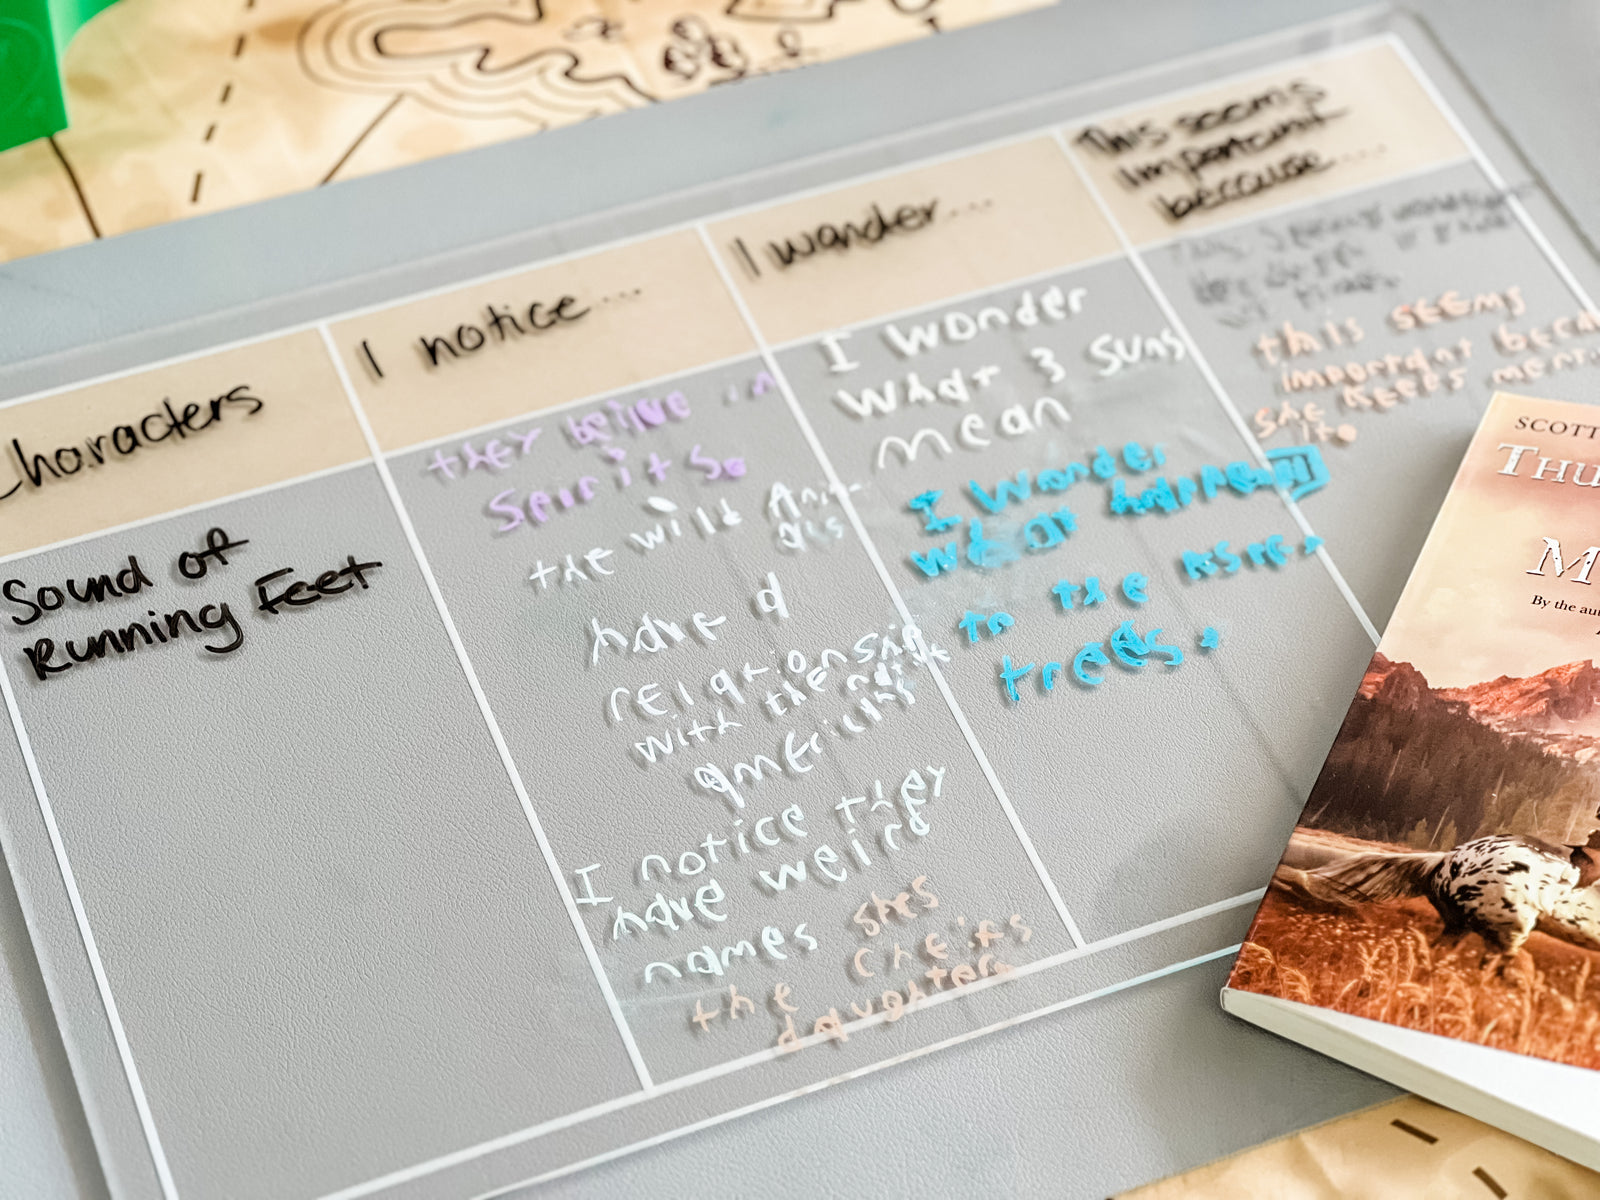 Characters
I notice...
I wonder...
This seems
important
because....
Sound of
Running Feet
they beilve in
Spirits.
the wild Ani-
als
have a
relationship
with the nati
americins
I notice they
have weird
names
shes
the cheifs
daughter.
I wonder
What 3 Suns
mean
I wonder
what happened
to the Aspe.
trees.
this seems
important beca
she keeps menti
it.
SCOTT
THU
M
By the au